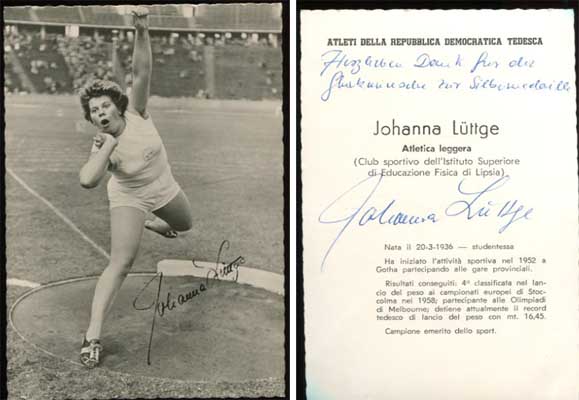 Johanna Lüttge
ATLETI DELLA REPUBBLICA DEMOCRATICA TEDESCA
Herzlichen Dank für die
Glückwünsche zur Silbermedaille
Johanna Lüttge
Atletica leggera
(Club sportivo dell'Istituto Superiore
di Educazione Fisica di Lipsia)
Johanna Lüttge
Nata il 20-3-1936 — studentessa
Ha iniziato l'attività sportiva nel 1952 a
Gotha partecipando alle gare provinciali.
Risultati conseguiti: 4ª classificata nel lan-
cio del peso ai campionati europei di Stoc-
colma nel 1958; partecipante alle Olimpiadi
di Melbourne; detiene attualmente il record
tedesco di lancio del peso con mt. 16,45.
Campione emerito dello sport.